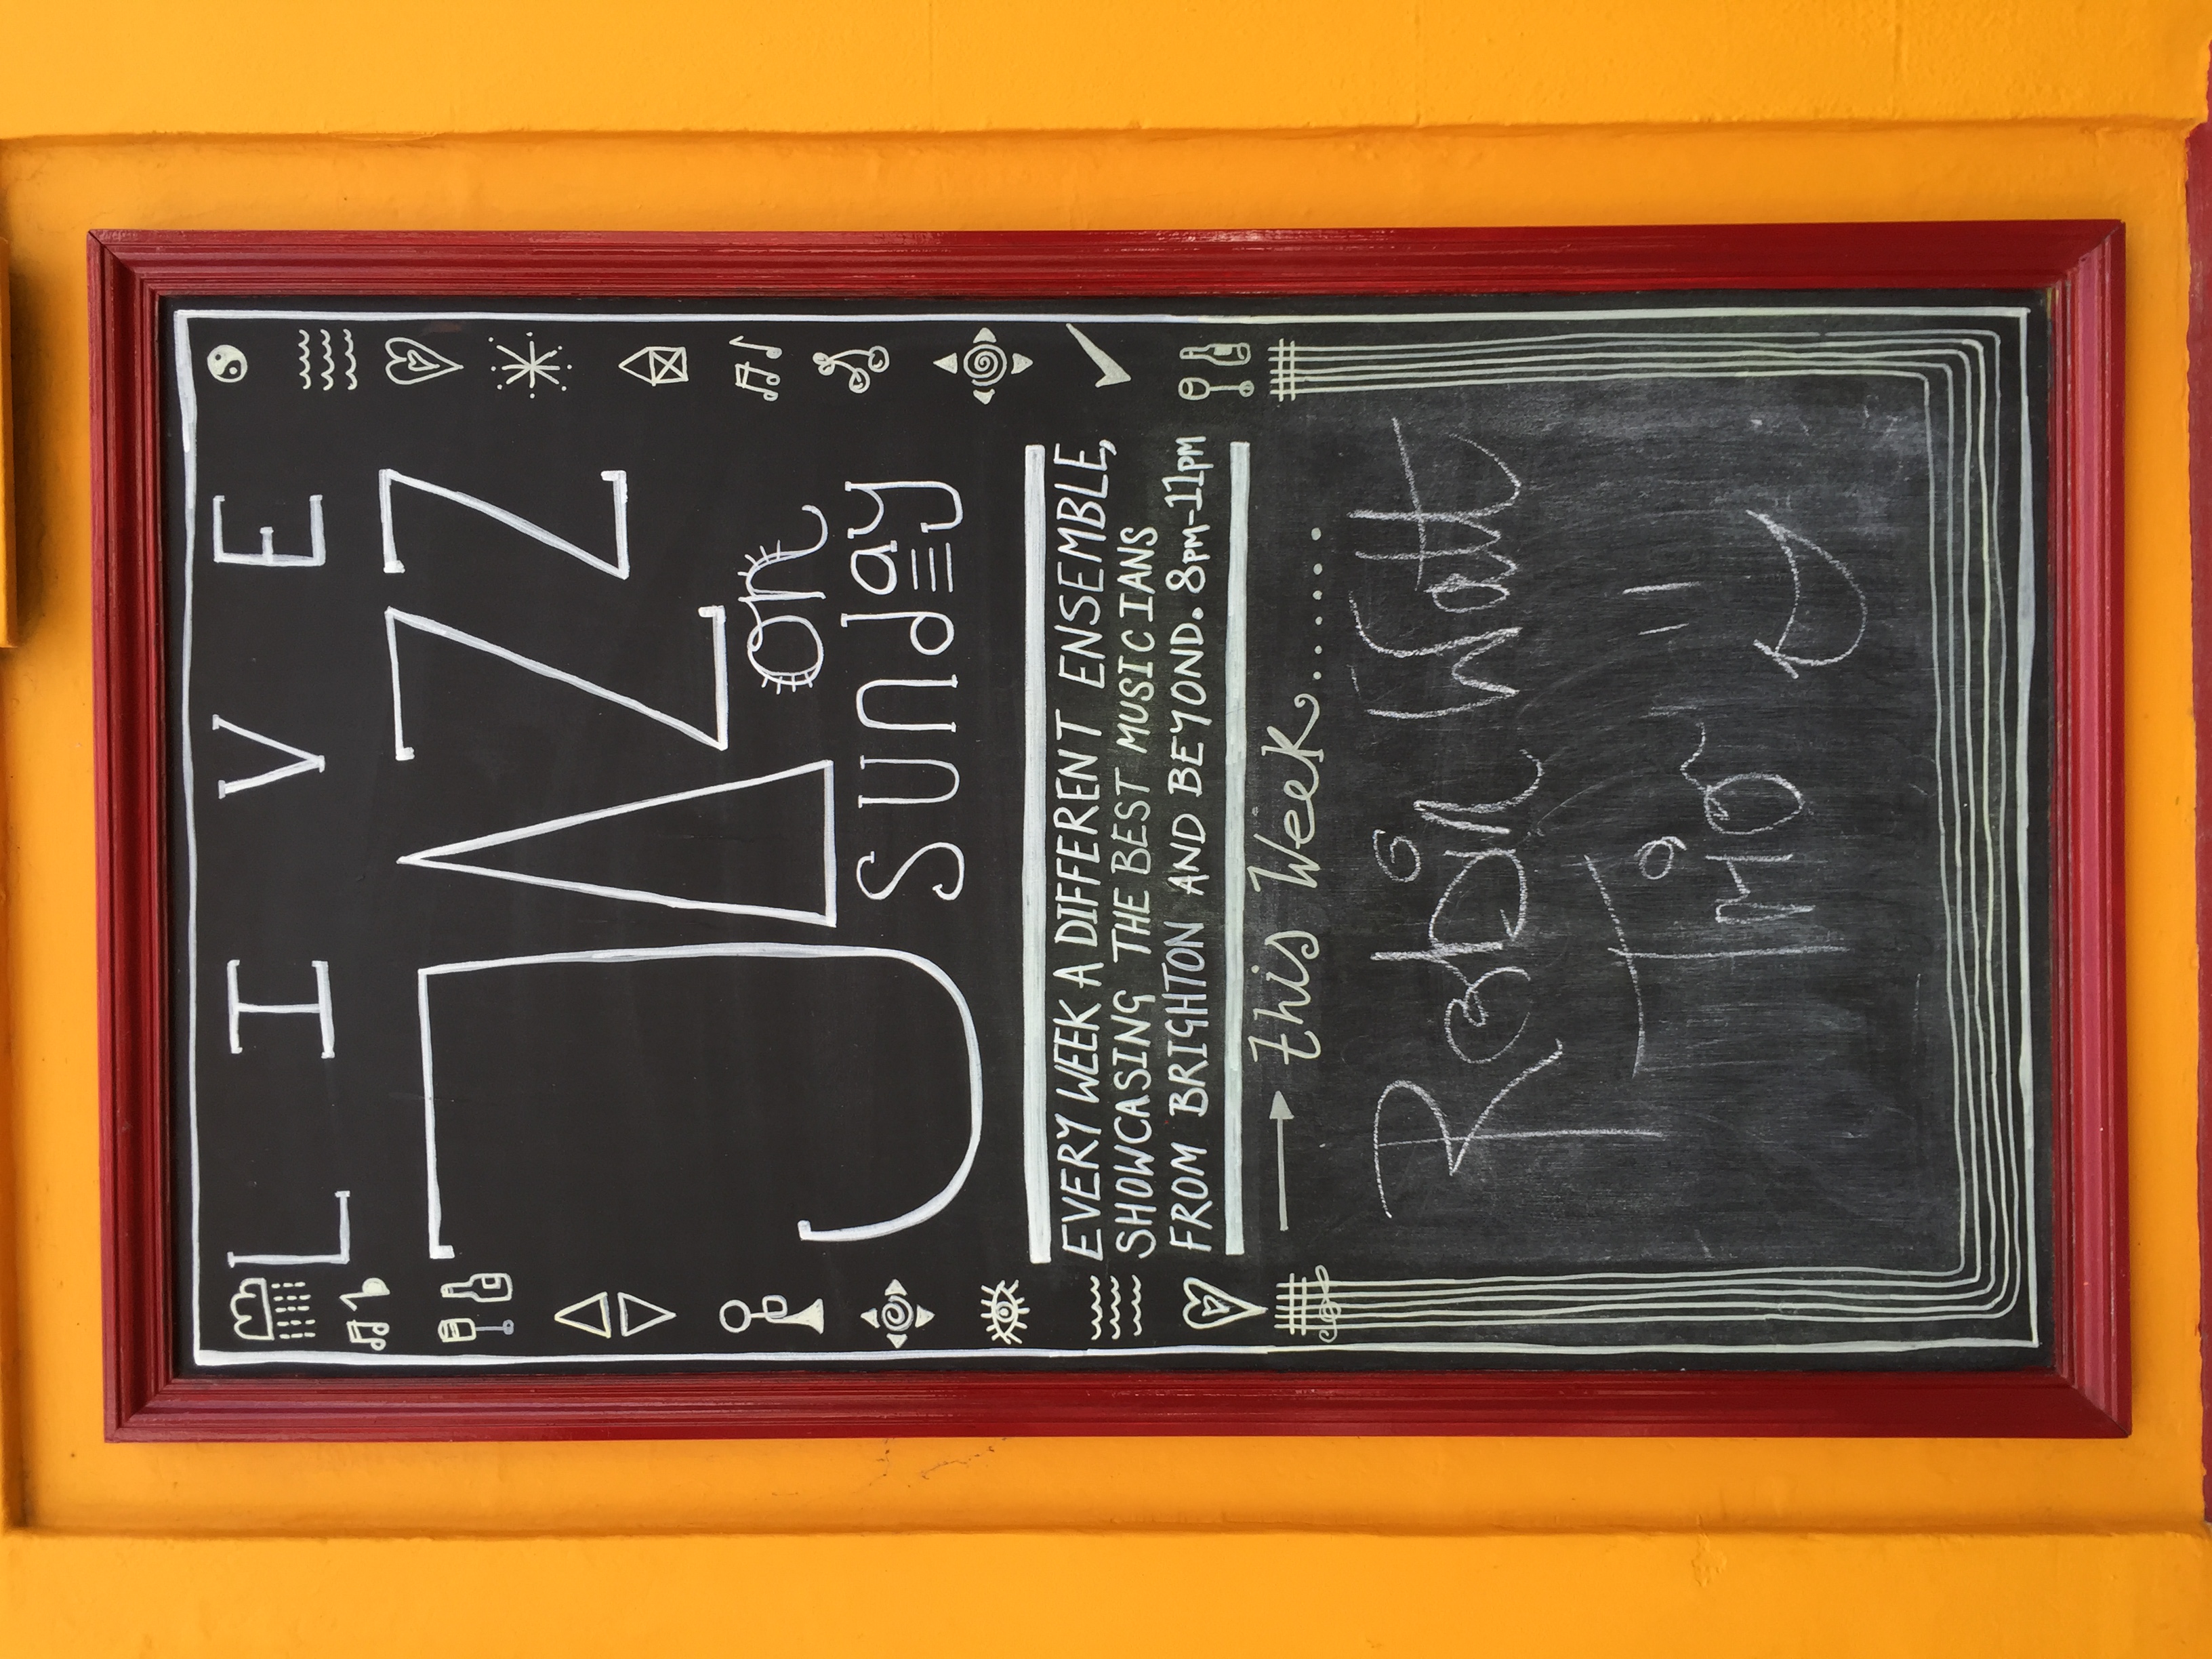 LIVE
JAZZ
on
SUNday
EVERY WEEK A DIFFERENT ENSEMBLE,
SHOWCASING THE BEST MUSICIANS
FROM BRIGHTON AND BEYOND. 8PM-11PM
this Week......
Robin Watt
Trio